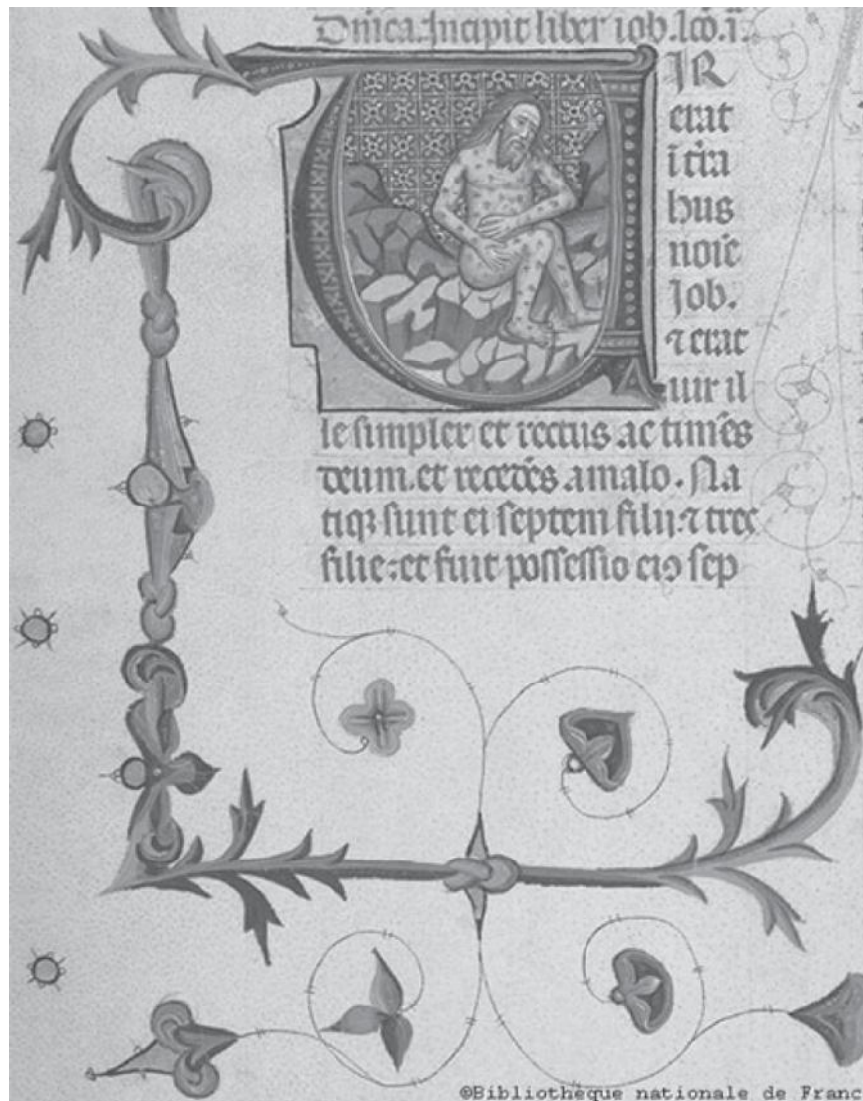 Dnica. Incipit liber iob. lco. i.
IR
erat
i tra
hus
noie
Job.
⁊ erat
uir il
le simplex et rectus ac timēs
deum. et recedēs a malo. Na
tiqꝫ sunt ei septem filii. ⁊ tres
filie: et fuit possessio eiꝰ sep
©Bibliothèque nationale de Franc